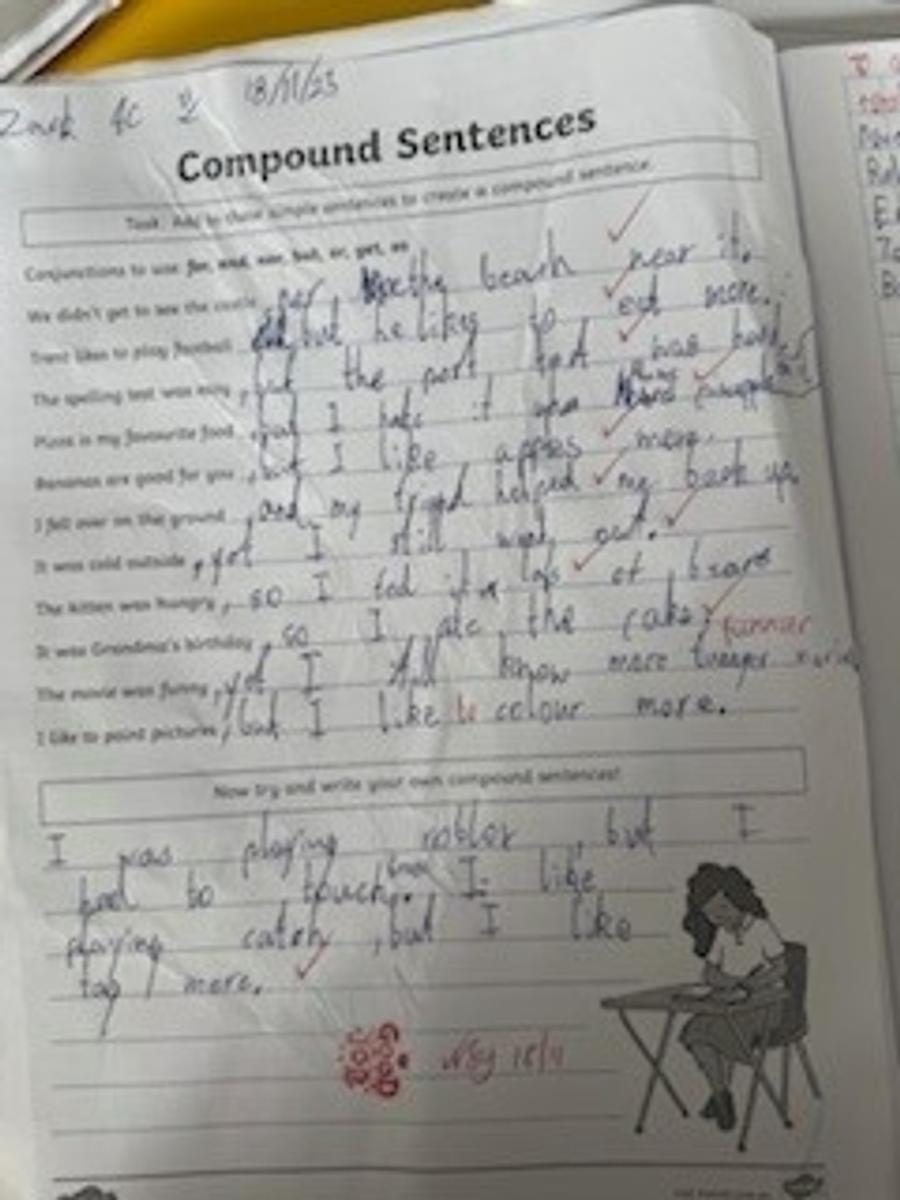 18/11/23
Compound Sentences
Task: Add to these simple sentences to create a compound sentence.
Conjunctions to use: for, and, nor, but, or, yet, so
We didn't get to see the castle, nor, the beach near it.
Trent likes to play football but he likes to eat more.
The spelling test was easy, but the part was hard
Pizza is my favourite food, but I hate it
Bananas are good for you, but I like apples more.
I fell over on the ground, and my friend helped my back up.
It was cold outside, yet I still went out.
The kitten was hungry, so I fed it of
It was Grandma's birthday, so I ate the cake
The movie was funny, yet I still know more funnier
I like to paint pictures, but I like to colour more.
Now try and write your own compound sentences!
I was playing roblox, but I
had to touch. I like
playing catch, but I like
tag more.
18/11